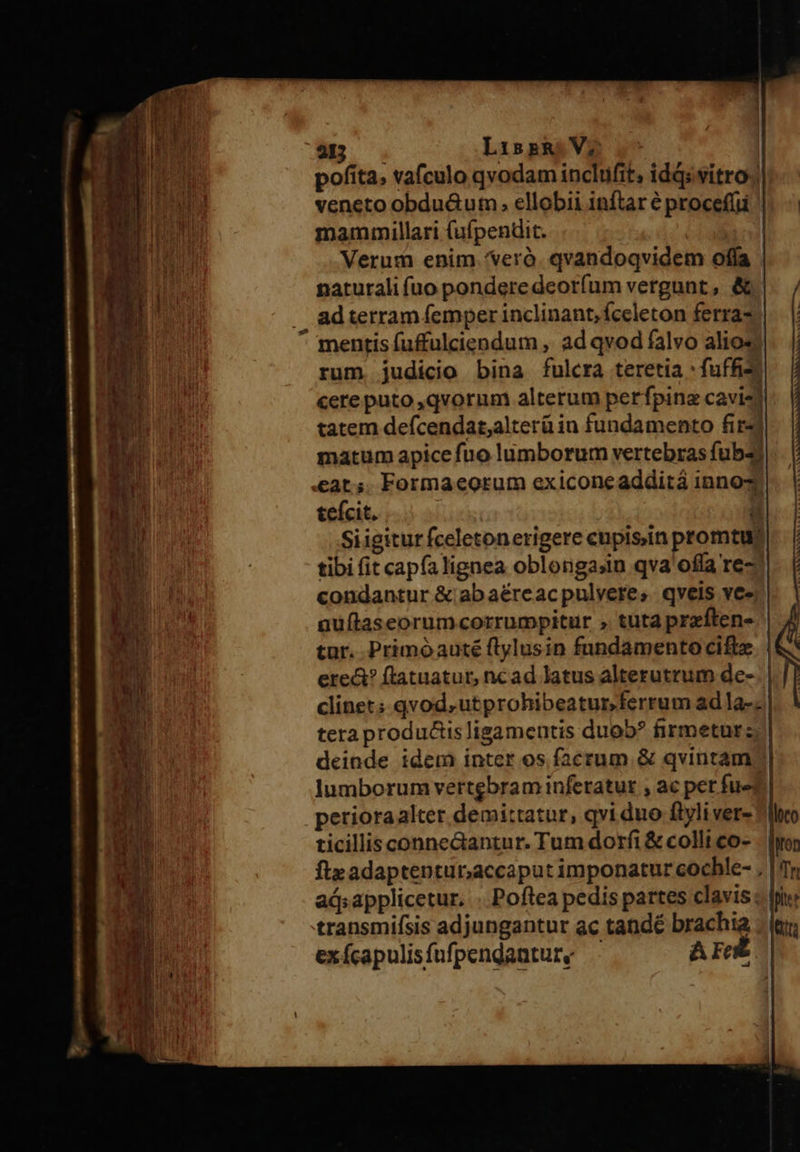 213 LIBER V.
poſita, vaſculo qvodam incluſit, idq; vitro
veneto obductum, ellobii inſtar è proceſſu
mammillari ſuſpendit.
Verum enim verò qvandoqvidem oſſa
naturali ſuo pondere deorſum vergunt, &
ad terram ſemper inclinant, ſceleton ferra-
mentis ſuffulciendum, ad qvod ſalvo alio-
rum judicio bina fulcra teretia ſuffi-
cere puto, qvorum alterum per ſpinæ cavi-
tatem deſcendat, alterū in fundamento fir-
matum apice ſuo lumborum vertebras ſub-
eat; Forma eorum ex icone additá inno-
teſcit.
Si igitur ſceleton erigere cupis, in promtu
tibi ſit capſa lignea oblonga, in qva oſſa re-
condantur & ab aëre ac pulvere, qveis ve-
nuſtas eorum corrumpitur, tuta præſten-
tur. Primò auté ſtylus in fundamento ciſtæ
erect⁹ ſtatuatur, ne ad latus alterutrum de-
clinet; qvod, ut prohibeatur, ferrum ad la-
tera productis ligamentis duob⁹ firmetur;
deinde idem inter os ſacrum & qvintam
lumborum vertebram inſeratur, ac per ſu-
periora alter demittatur, qvi duo ſtyli ver-
ticillis connectantur. Tum dorſi & colli co-
ſtæ adaptentur, ac caput imponatur cochle-
aq; applicetur. Poſtea pedis partes clavis
transmiſsis adjungantur ac tandé brachia
ex ſcapulis ſuſpendantur,